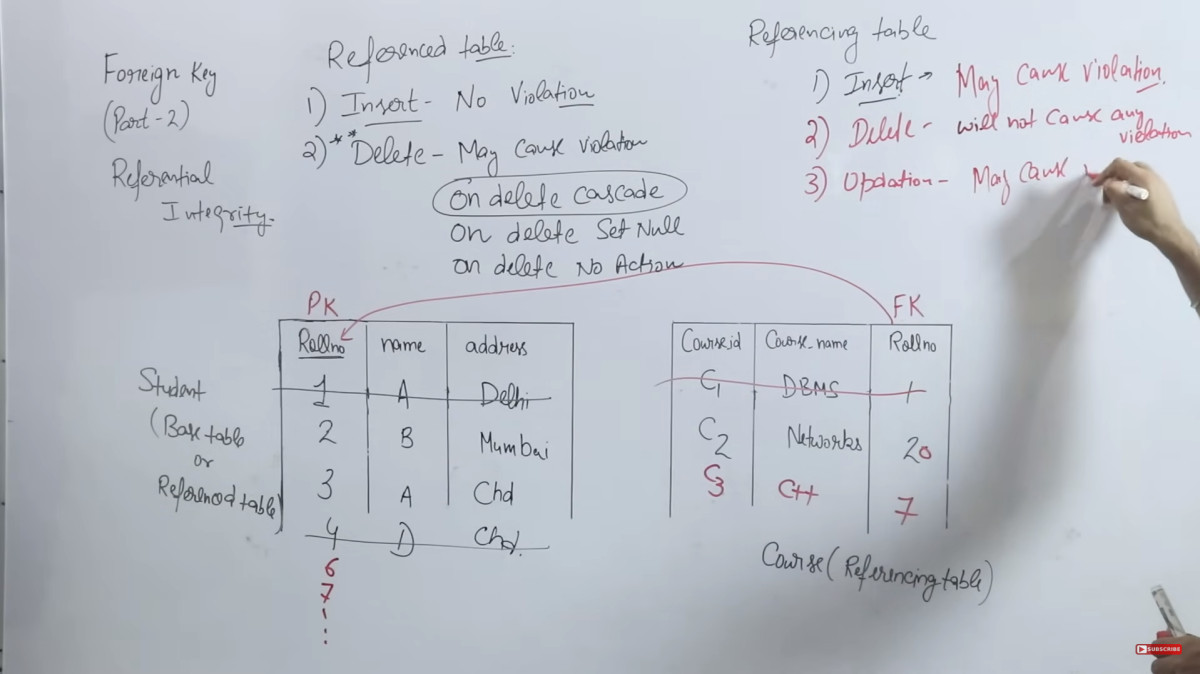 Foreign Key
(Part-2)
Referential
Integrity.
Referenced table:
1) Insert - No Violation
2)** Delete - May Cause violation
On delete Cascade
On delete Set Null
on delete No Action
Referencing table
1) Insert → May Cause Violation.
2) Delete - will not cause any
violation
3) Updation - May Cause
PK
Rollno name address
1 A Delhi
2 B Mumbai
3 A Chd
4 D Chd.
6
7
Student
(Base table
or
Referenced table)
FK
Course_id Course_name Rollno
C1 DBMS 1
C2 Networks 20
C3 C++ 7
Course (Referencing table)
SUBSCRIBE